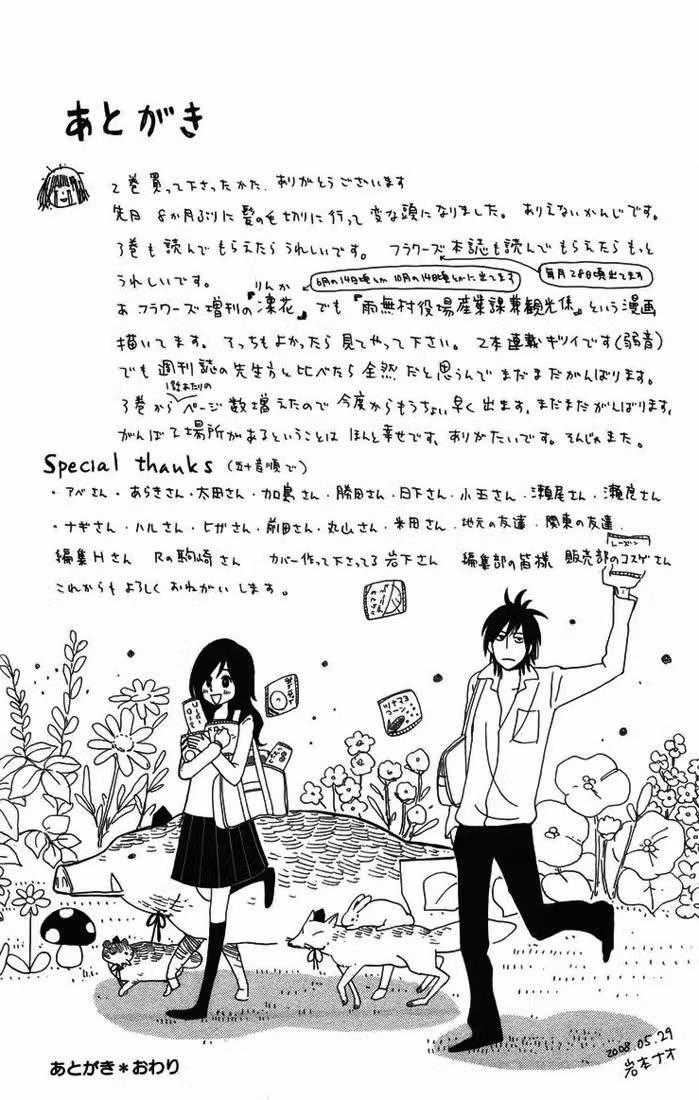 あとがき
2巻買って下さったかた、ありがとうございます
先日 8か月ぶりに髪の毛切りに行って変な頭になりました。ありえないかんじです。
3巻も読んでもらえたらうれしいです。フラワーズ本誌も読んでもらえたらもっと
うれしいです。
6月の14日頃とか10月の14日頃とかに出てます
毎月28日頃出てます
りんか
あ フラワーズ増刊の『凜花』でも『雨無村役場産業課兼観光係』という漫画
描いてます。そっちもよかったら見てやって下さい。2本連載ギツイです(弱音)
でも週刊誌の先生方と比べたら全然だと思うんでまだまだがんばります。
1話あたりの
3巻からページ数増えたので今度からもうちょい早く出ます、まだまだがんばります、
がんばる場所があるということはほんと幸せです、ありがたいです。そんじゃまた。
Special thanks (五十音順で)
・アベさん・あらきさん・太田さん・加島さん・勝田さん・日下さん・小玉さん・瀬尾さん・瀬良さん
・ナギさん・ハルさん・ヒガさん・前田さん・丸山さん・米田さん・地元の友達・関東の友達・
編集Hさん Rの駒崎さん カバー作って下さってる岩下さん 編集部の皆様 販売部のコスゲさん
これからもよろしくおねがいします。
レーズン
ツヤマヨコーン
2008.05.29
岩本ナオ
あとがき＊おわり